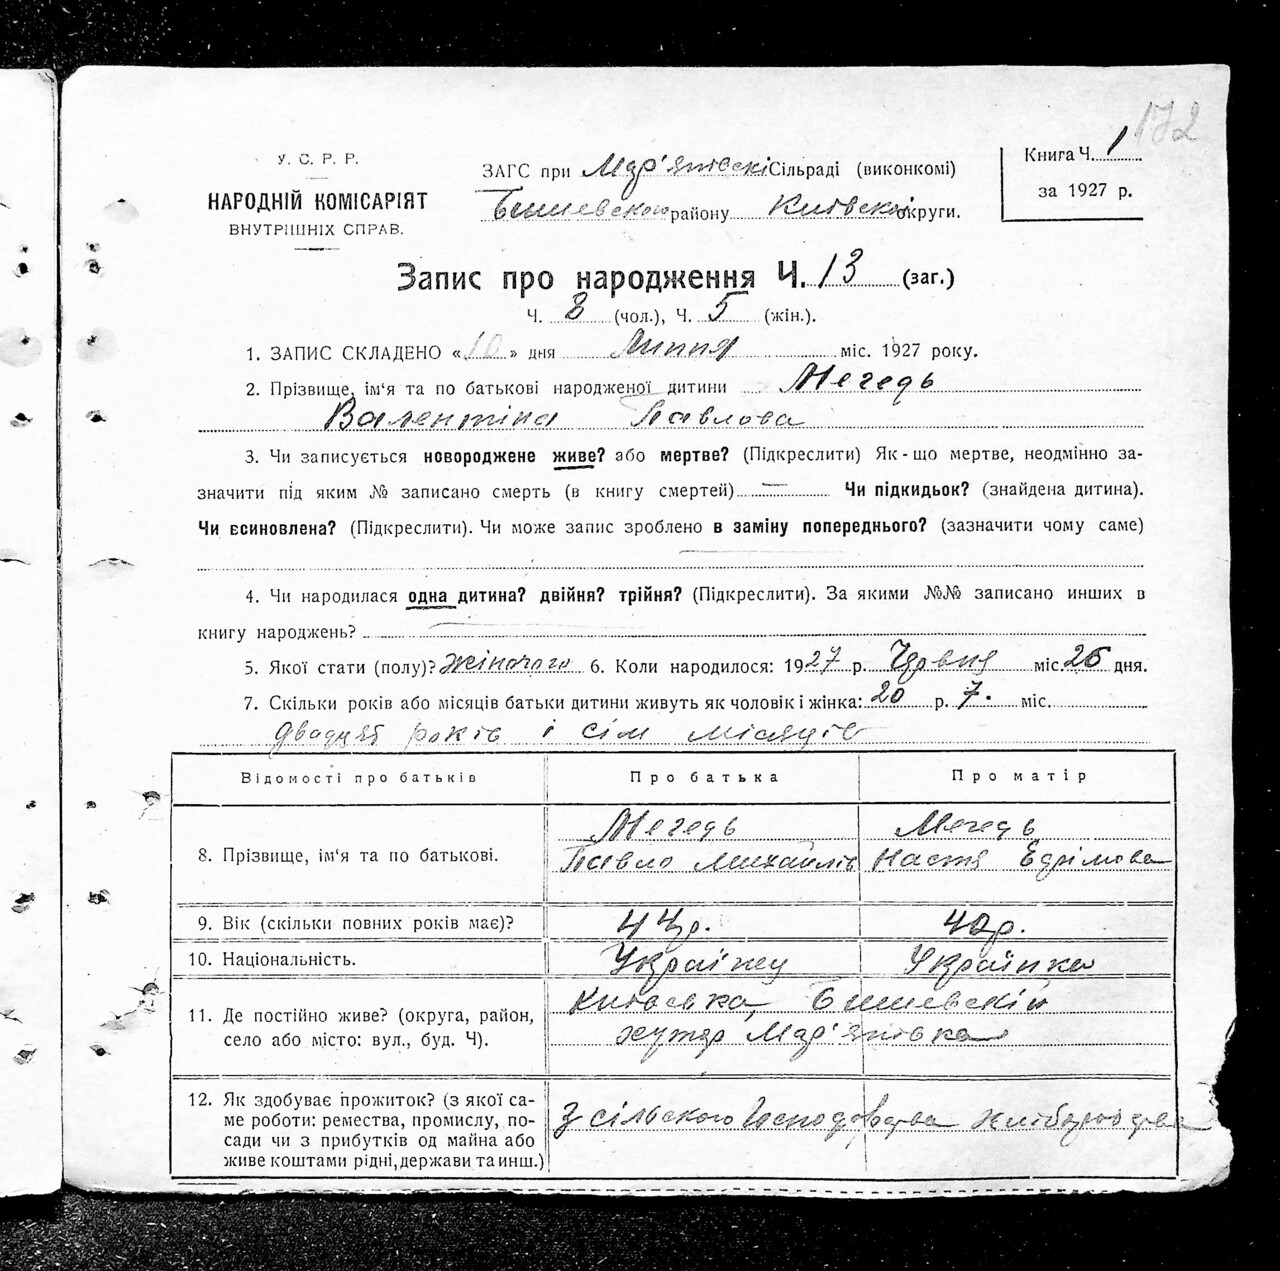 172
У. С. Р. Р.
НАРОДНІЙ КОМІСАРІЯТ
ВНУТРІШНІХ СПРАВ.
ЗАГС при Мар'янівскі Сільраді (виконкомі)
Бишевского району Київскої округи.
Книга Ч. 1
за 1927 р.
Запис про народження Ч. 13 (заг.)
Ч. 8 (чол.), Ч. 5 (жін.).
1. ЗАПИС СКЛАДЕНО «10» дня Липня міс. 1927 року.
2. Прізвище, ім'я та по батькові народженої дитини Мегедь
Валентіна Павлова
3. Чи записується новороджене живе? або мертве? (Підкреслити) Як-що мертве, неодмінно за-
значити під яким № записано смерть (в книгу смертей) — Чи підкидьок? (знайдена дитина).
Чи всиновлена? (Підкреслити). Чи може запис зроблено в заміну попереднього? (зазначити чому саме)
4. Чи народилася одна дитина? двійня? трійня? (Підкреслити). За якими №№ записано инших в
книгу народжень?
5. Якої стати (полу)? Жіночого 6. Коли народилося: 1927 р. Червня міс. 26 дня.
7. Скільки років або місяців батьки дитини живуть як чоловік і жінка: 20 р. 7. міс.
двадцять років і сім місяців
Відомості про батьків Про батька Про матір
8. Прізвище, ім'я та по батькові.
Мегедь Мегедь
Павло Михайлів Настя Ефімова
9. Вік (скільки повних років має)? 44р. 40р.
10. Національність. Украінец Украінка
11. Де постійно живе? (округа, район,
село або місто: вул., буд. Ч).
Київська, Бишевский
хутар Мар'янівка
12. Як здобуває прожиток? (з якої са-
ме роботи: ремества, промислу, по-
сади чи з прибутків од майна або
живе коштами рідні, держави та инш.)
З сільского Господарства